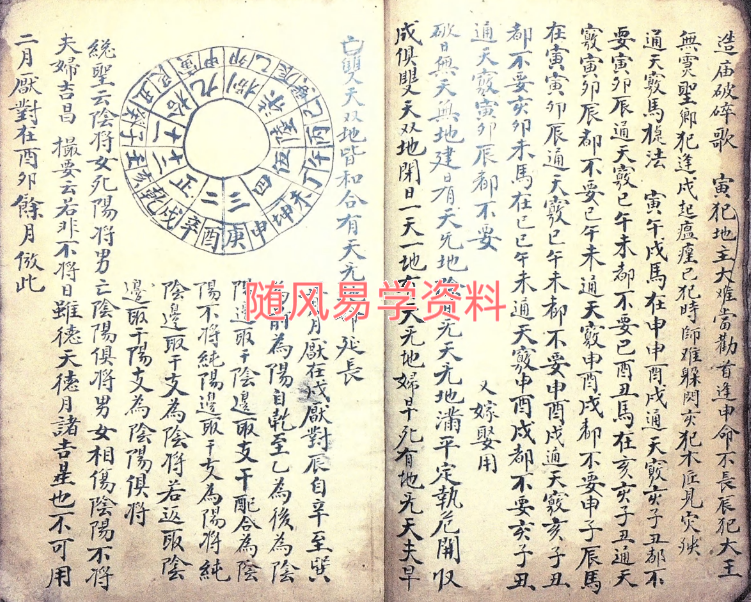 造庙破碎歌　寅犯地王大难當 勸首逢申命不長 辰犯大王
無灵聖 卿犯逢戌起瘟 已犯時師难躲閃 亥犯本庄見灾殃
通天竅馬旋法　寅午戌馬在申申酉戌通天竅亥子丑都不
要寅卯辰通天竅巳午未都不要巳酉丑馬在亥亥子丑通天
竅寅卯辰都不要巳午未通天竅申酉戌都不要申子辰馬
在寅寅卯辰通天竅巳午未都不要申酉戌通天竅亥子丑
都不要亥卯未馬在巳巳午未通天竅申酉戌都不要亥子丑
通天竅寅卯辰都不要　又嫁娶用
破日無天無地建日有天无地除日无天无地滿平定執危開収
成俱雙天双地閉日一天一地有天无地婦早死有地无天夫早
亡雙天双地皆和合有天无地命延長
正 二 三 四 九 十 十一 十二
丁 未 坤 申 庚 酉 辛 戌 乾 亥 壬 子 癸 丑
正月厭在戌厭對辰自辛至巽
為前為陽自乾至乙為後為陰
陽邊取干陰邊取支干配合為陰
陽不將純陽邊取干支為陽將純
陰邊取干支為陰將若返取陰
邊取干陽支為陰陽俱將
総聖云陰將女死陽將男亡陰陽俱將男女相傷陰陽不將
夫婦吉昌　撮要云若非不將日雖德天德月諸吉星也不可用
二月厭對在酉卯餘月倣此
随风易学资料